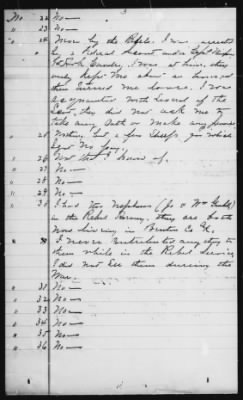 3
No. 22 No—
" 23 No—
" 24 Never by the Rebels. I was arrested
by a Federal Scout under Capt
I was at home, they
only kept me about an hour and
then turned me loose. I was
acquainted with several of the
Scout, they did not ask me to
take any Oath or make any promise
" 25 Nothing but a few Sheep for which
I got No pay.
" 26 Not that I know of.
" 27 No—
" 28 No—
" 29 No—
" 30 I had two Nephews (Jo & Wm
in the Rebel Army. they are both
now living in Benton Co
" I never contributed any thing to
them while in the Rebel Service
I did not see them during the
War.
" 31 No—
" 32 No—
" 33 No—
" 34 No—
" 35 No—
" 36 No—